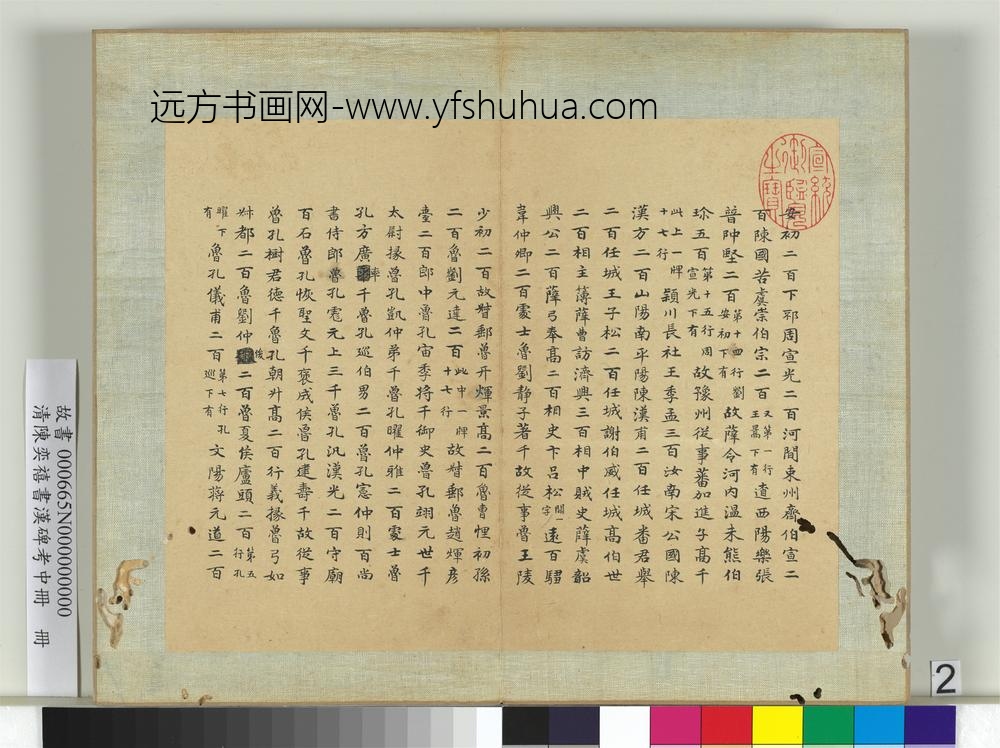 远方书画网-www.yfshuhua.com
宣統御臨覽之寶
安初二百下邳周宣光二百河間東州齊伯宣二
百陳國苦虞崇伯宗二百又第一行王暠下有遺西陽樂張
普仲堅二百第十四行劉安初下有故薛令河內溫朱熊伯
珎五百第十五行周宣光下有故豫州從事蕃加進子高千
此上一牌十七行潁川長社王季孟三百汝南宋公國陳
漢方二百山陽南平陽陳漢甫二百任城番君舉
二百任城王子松二百任城謝伯威任城高伯世
二百相主簿薛曹訪濟興三百相中賊史薛虞韶
興公二百薛弓奉高二百相史卞呂松闕一字遠百騶
韋仲卿二百處士魯劉靜子著千故從事魯王陵
少初二百故督郵魯开煇景高二百魯曹悝初孫
二百魯劉元達二百此中一牌十七行故督郵魯趙煇彥
臺二百郎中魯孔宙季將千御史魯孔翊元世千
太尉掾魯孔凱仲弟千魯孔曜仲雅二百處士魯
孔方廣率千魯孔巡伯男二百魯孔憲仲則百尚
書侍郎魯孔彪元上三千魯孔汎漢光二百守廟
百石魯孔恢聖文千褒成侯魯孔建壽千故從事
魯孔樹君德千魯孔朝升高二百行義掾魯弓如
叔都二百魯劉仲俊二百魯夏侯廬頭二百第五行孔
曜下有魯孔儀甫二百第七行孔巡下有文陽蔣元道二百
故書 000665N000000000
清陳奕禧書漢碑考中冊 冊
2